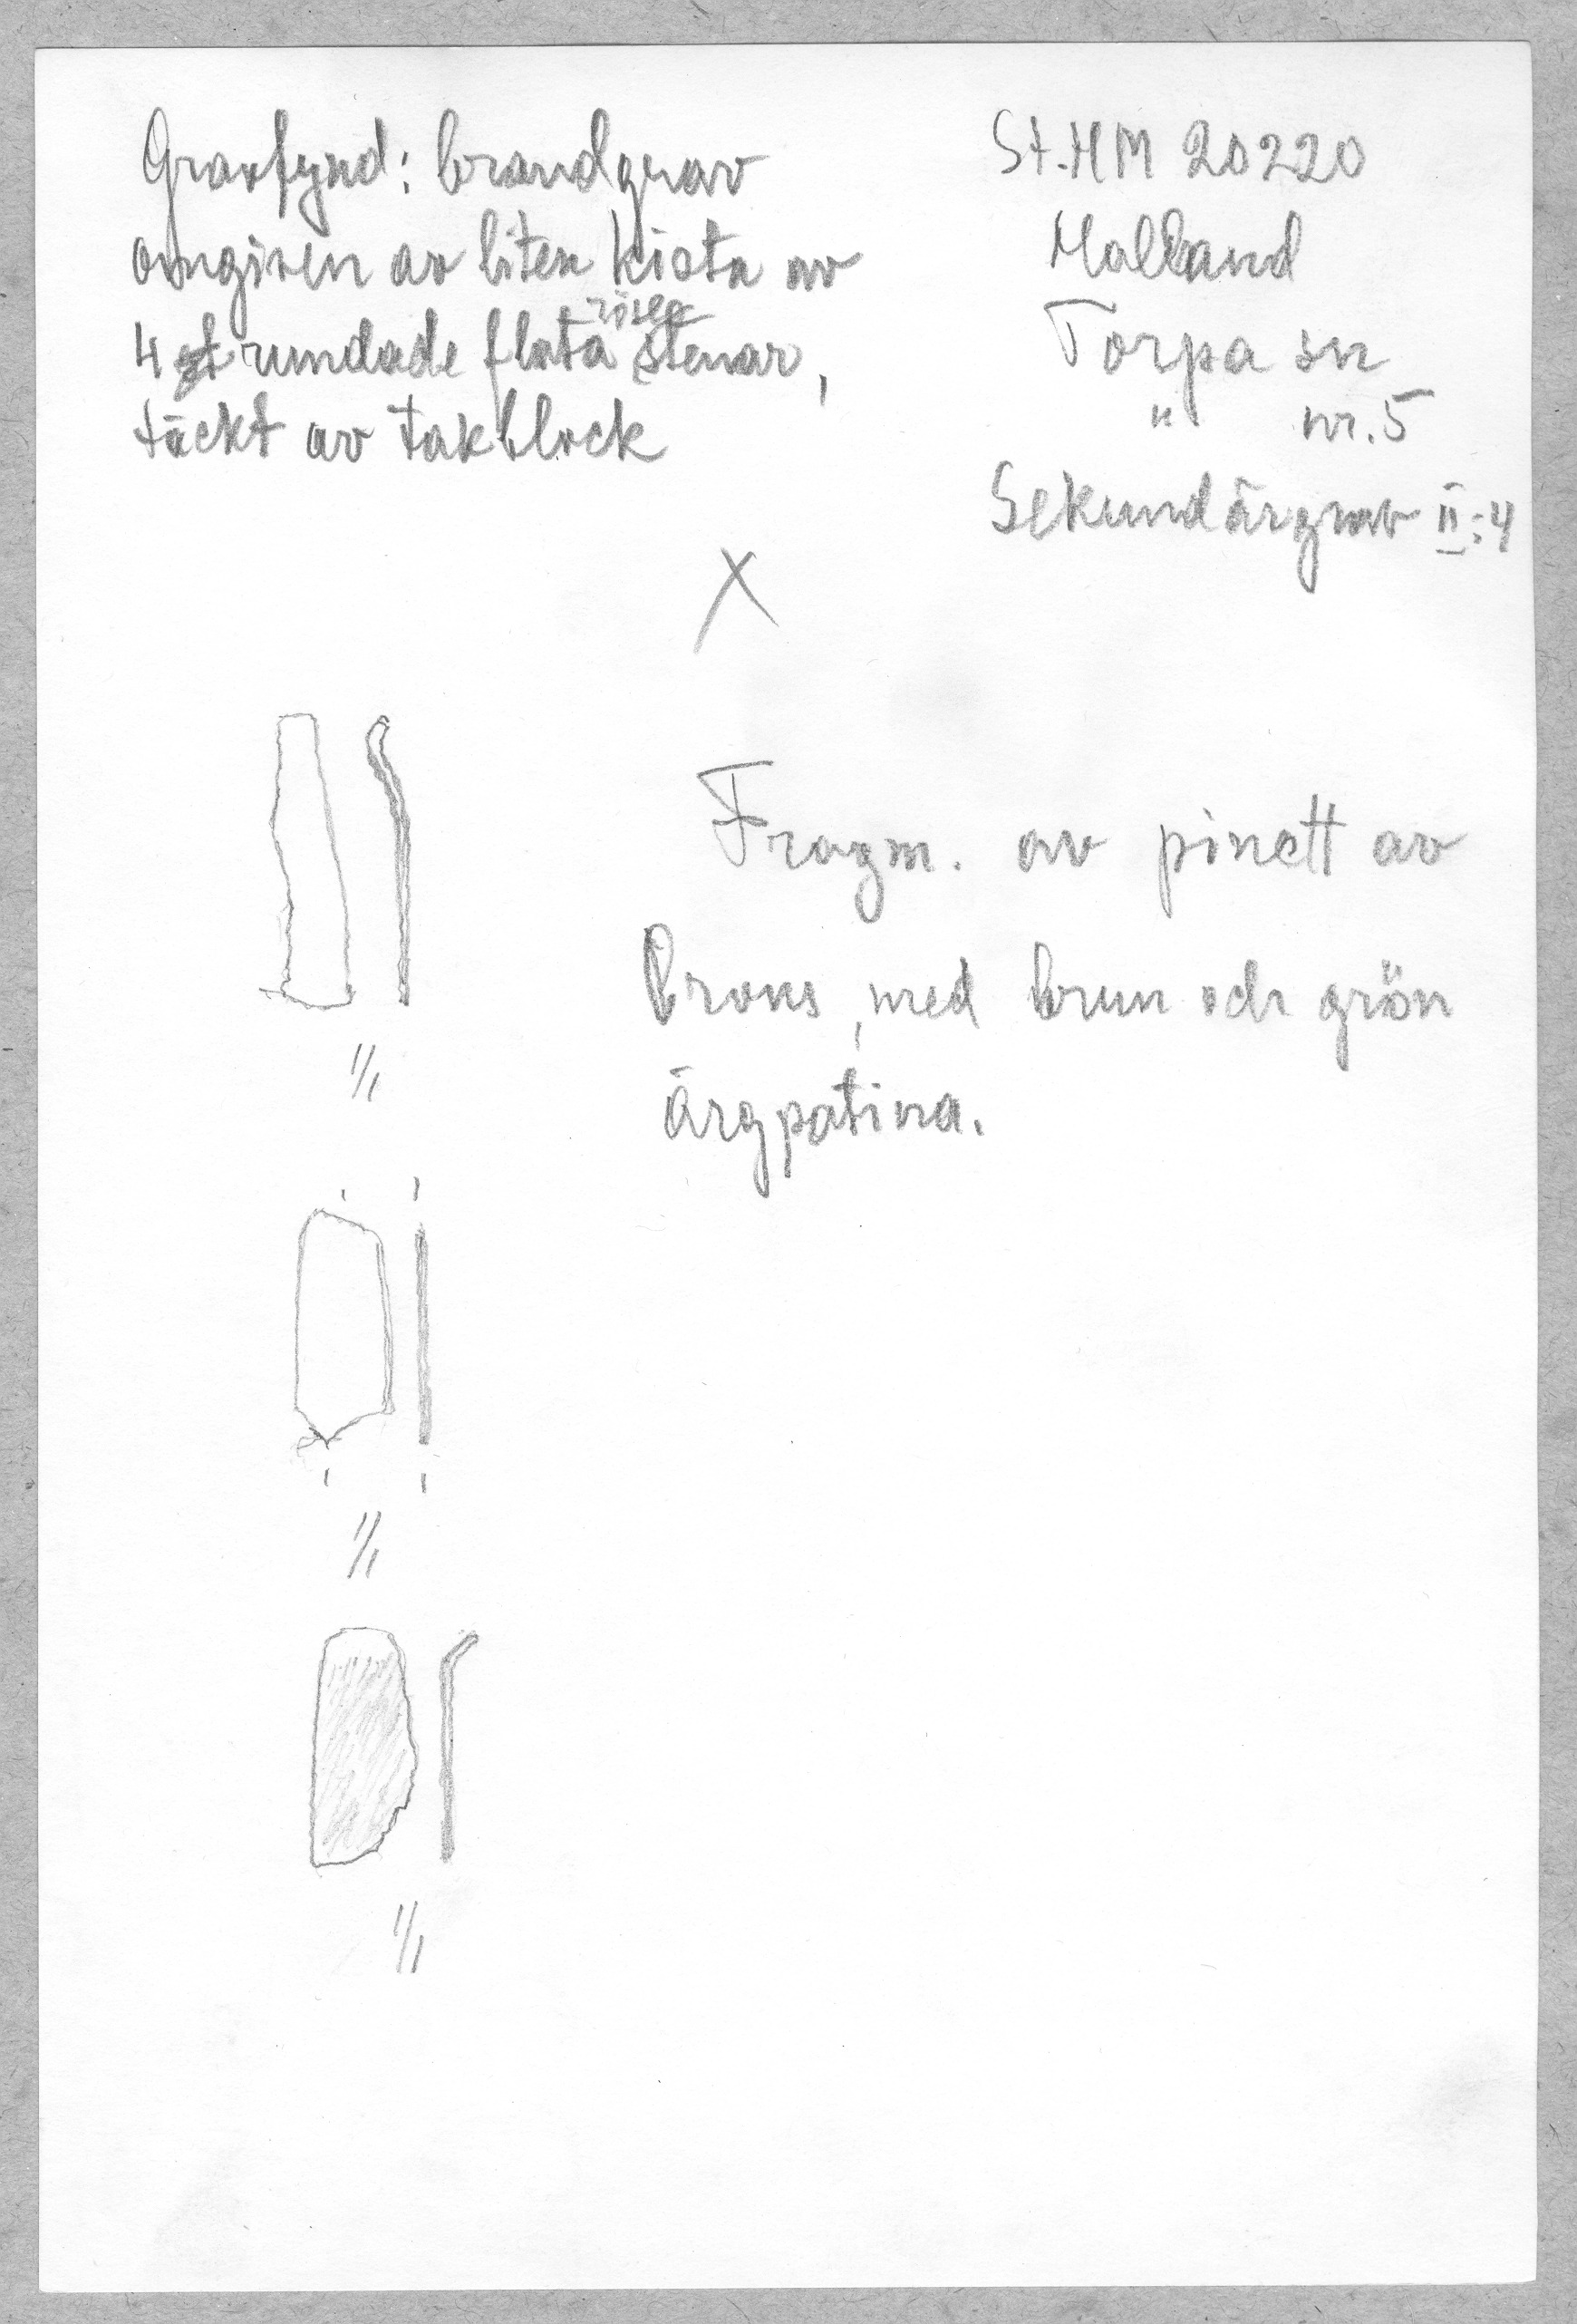 Gravfynd: brandgrav
omgiven av liten kista av
4 st rundade flata rösen stenar,
täckt av takblock
St.HM 20220
Halland
Torpa sn
" nr. 5
Sekundärgrav II:4
X
Fragm. av pincett av
brons, med brun och grön
ärgpatina.
1/1
1/1
1/1